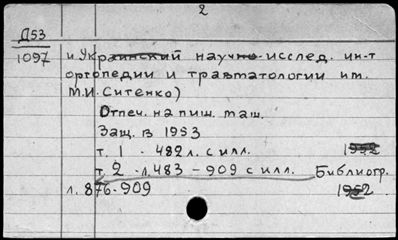 2
Д53
1097
и Украинский научно-исслед. ин-т
ортопедии и травматологии им.
М.И. Ситенко)
Отпеч. на пиш. маш.
Защ. в 1953
т. 1 - 482 л. с илл. 1952
т. 2 - л. 483 - 909 с илл. Библиогр.
л. 876-909 1952